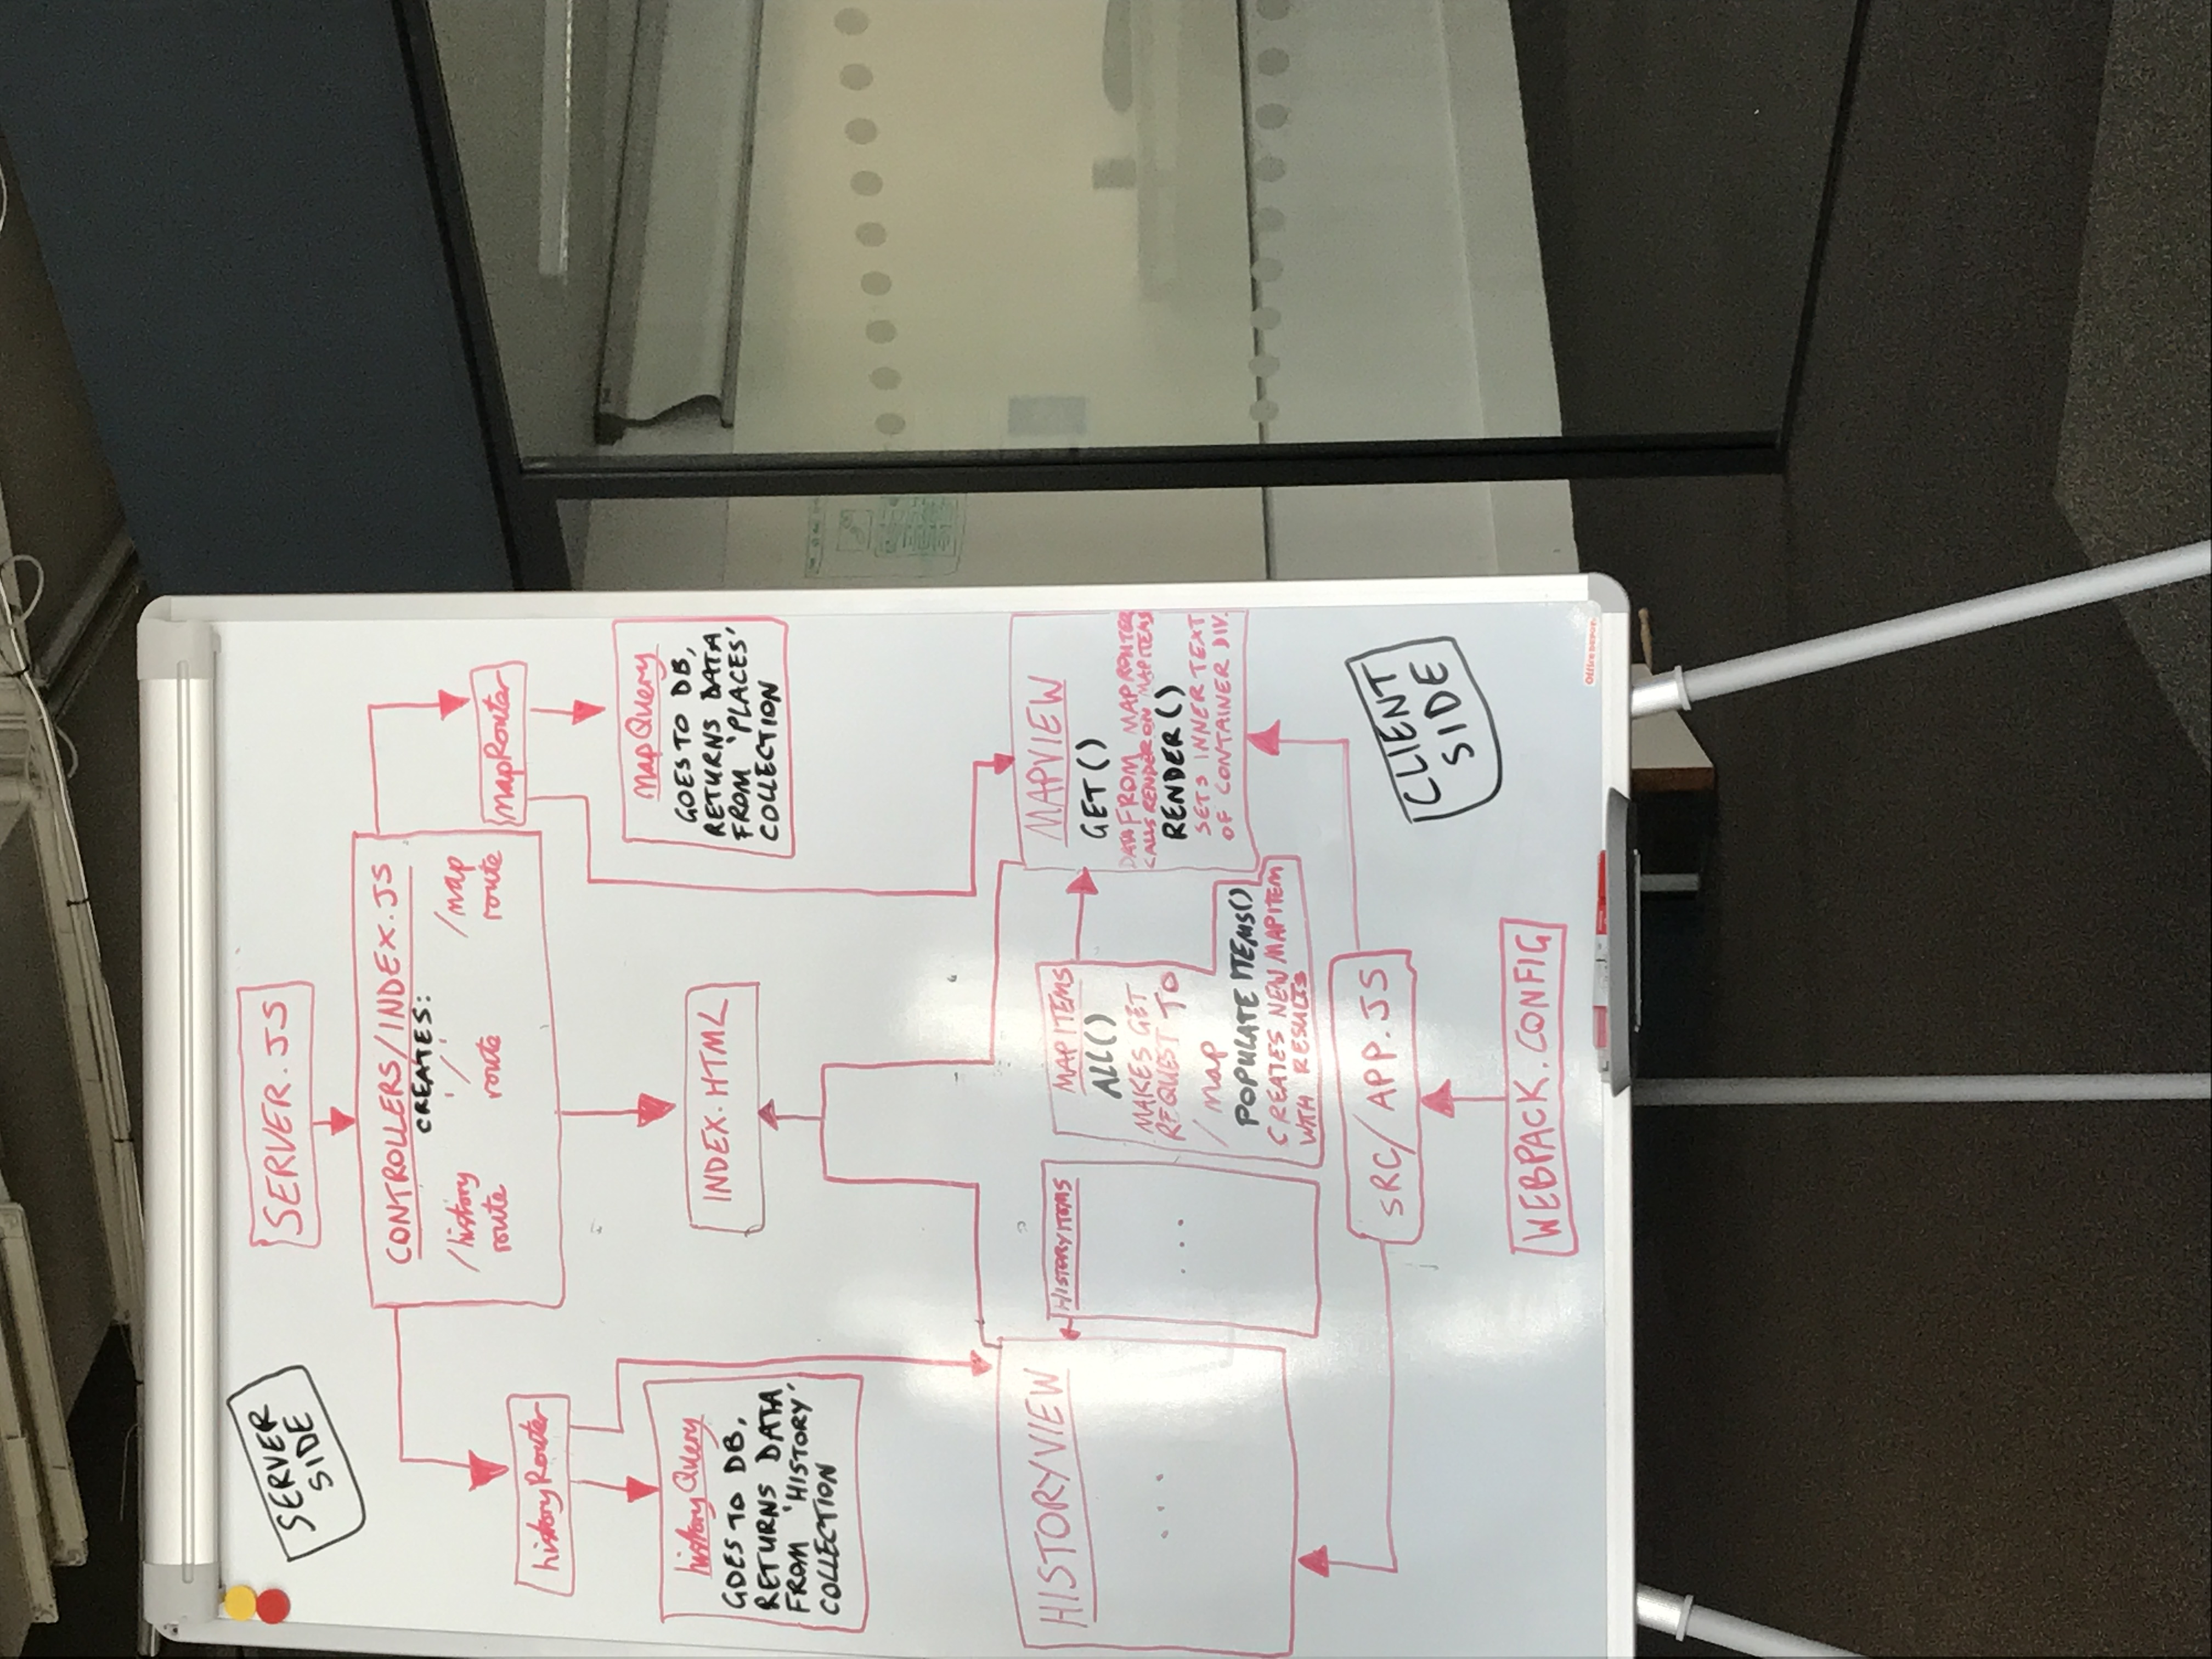 SERVER
SIDE
SERVER.JS
CONTROLLERS/INDEX.JS
CREATES:
/history
route
'/'
route
/map
route
historyRouter
mapRouter
historyQuery
GOES TO DB,
RETURNS DATA
FROM 'HISTORY'
COLLECTION
INDEX.HTML
mapQuery
GOES TO DB,
RETURNS DATA
FROM 'PLACES'
COLLECTION
HISTORYVIEW
...
HISTORYITEMS
...
MAPITEMS
ALL()
MAKES GET
REQUEST TO
/map
POPULATE ITEMS()
CREATES NEW MAPITEM
WITH RESULTS
MAPVIEW
GET()
DATA FROM MAPROUTER
CALLS RENDER ON MAPITEMS
RENDER()
SETS INNER TEXT
OF CONTAINER DIV.
SRC/APP.JS
CLIENT
SIDE
WEBPACK.CONFIG
Office DEPOT